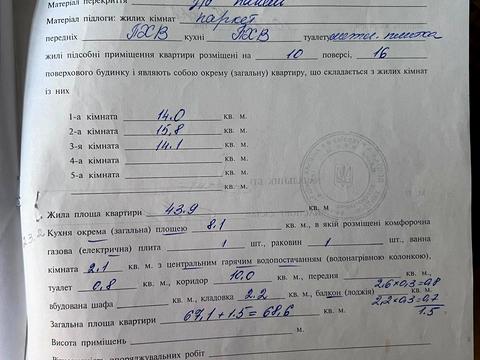 Матеріал перекриття з/б панелі
Матеріал підлоги: жилих кімнат паркет
передніх ПХВ кухні ПХВ туалету метл. плитка
жилі підсобні приміщення квартири розміщені на 10 поверсі, 16
поверхового будинку і являють собою окрему (загальну) квартиру, що складається з жилих кімнат
із них
1-а кімната 14.0 кв. м.
2-а кімната 15,8 кв. м.
3-я кімната 14.1 кв. м.
4-а кімната кв. м.
5-а кімната кв. м.
кв. м.
Жила площа квартири 43.9 кв. м
Кухня окрема (загальна) площею 8.1 кв. м., в якій розміщені комфорочна
газова (електрична) плита 1 шт., раковин 1 шт., ванна
кімната 2,1 кв. м. з центральним гарячим водопостачанням (водонагрівною колонкою),
туалет 0,8 кв. м., коридор 10.0 кв. м., передня кв. м.,
2,6×0,3=0,8
вбудована шафа кв. м., кладовка 2.2 кв. м., балкон (лоджія) кв. м.
2,2×0.3=0.7
1.5
Загальна площа квартири 67,1 + 1.5 = 68,6 кв. м.
Висота приміщень м.
опоряджувальних робіт